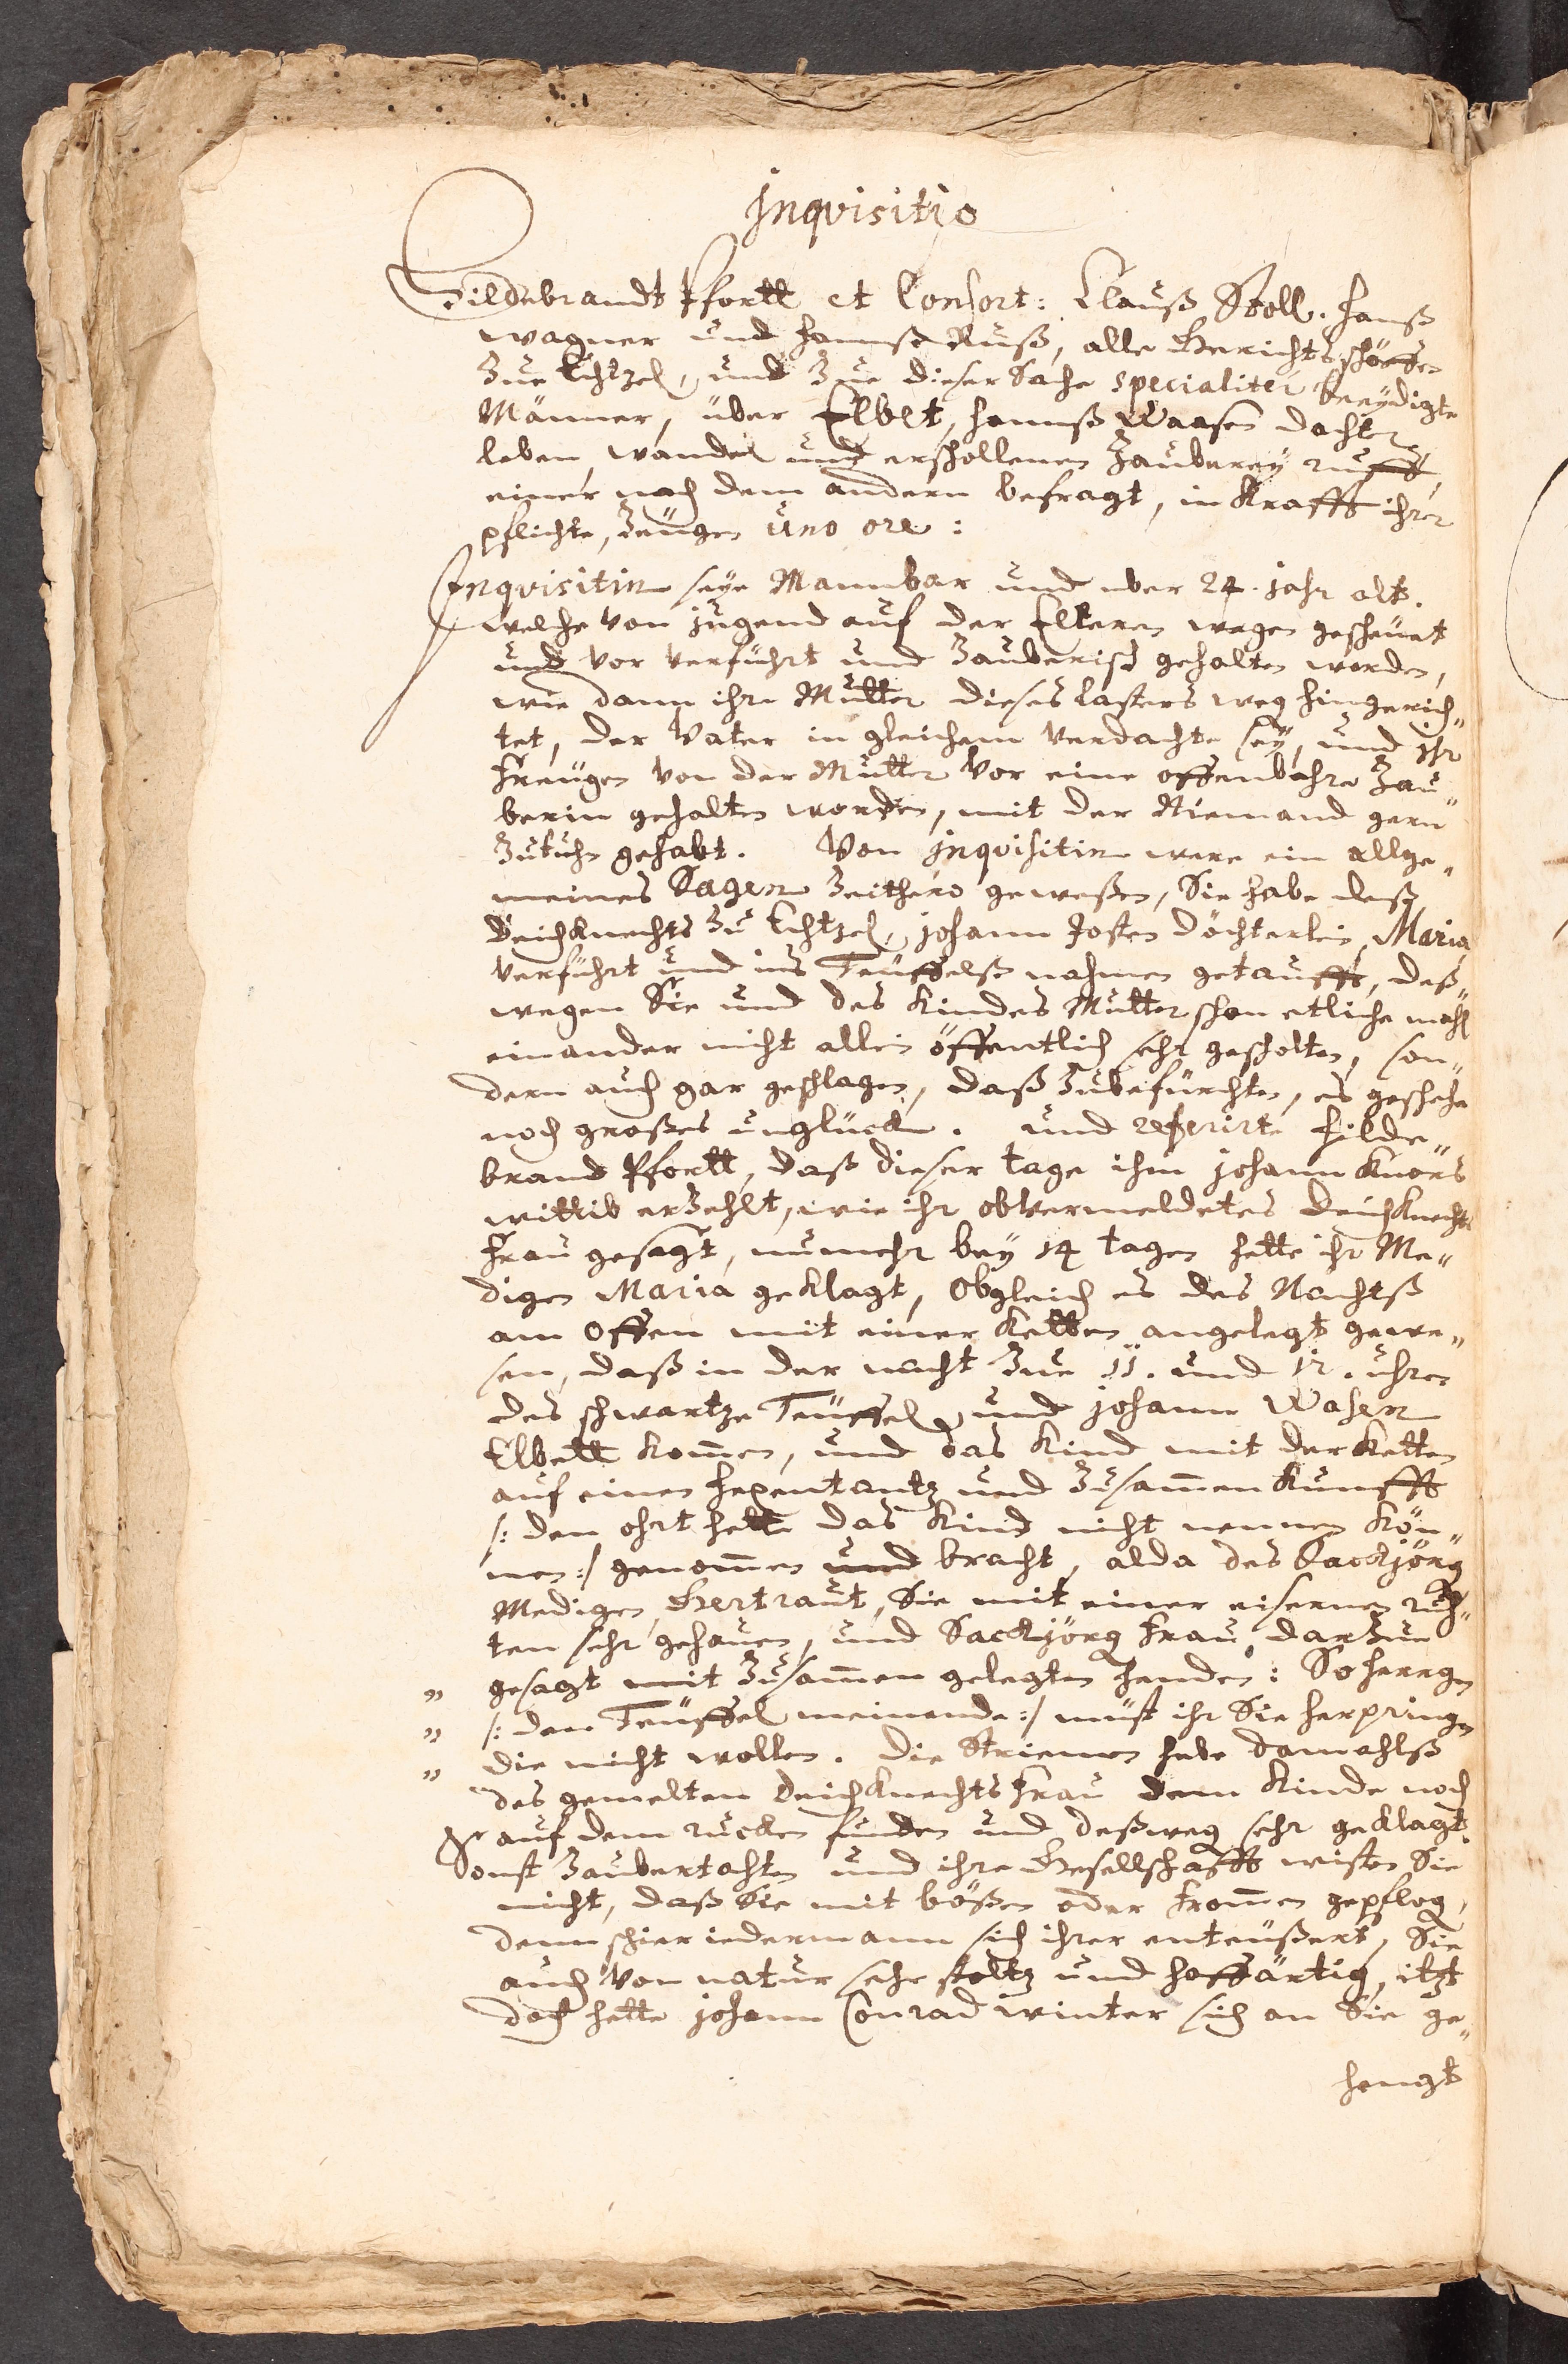 Inqvisitio
Hildebrandt Pfortt et Consort: Clauß Stoll. Hanß
Wagner und Hannß Ruß, alle Gerichtsschöffen
Zue Echtzel, und Zue dieser Sache specialiter beeydigte
Männer, über Elbet, Hannß Waasen dochter
leben, wandel und erschollenen Zauberey ruff,
einer nach dem andern befragt, in Krafft ihrer
pflichte, Zeugen uno ore:
Inqvisitin seye Mannbar und uber 24. jahr alt.
welche von jugend auf der Elteren wegen gescheuet
und vor verführt und Zauberisch gehalten worden,
wie dann ihre Mutter dieses lasters weg hingerich„
tet, der Vater in gleichem verdachte sey, und ihr
Freugen von der Mutter vor eine offenbahre Zau„
berin gehalten worden, mit der Niemand gern
Zutuhn gehabt. Von Inquisitin were ein allge„
meines Sagen Zeithero geweßen, Sie habe deß
Deichknechts Zu Echtzel, Johann Josten döchterlein, Maria
verführt und ins Teuffelß nahmen getaufft, deß„
wegen Sie und des Kindes Mutter schon etliche mahl
einander nicht allein öffentlich sehr gescholten, son„
dern auch gar geschlagen, daß Zubefürchten, es geschehe
noch großes unglück. und referirte Hilde„
brand Pfortt, daß dieser tage ihm Johann Knörs
wittib erZehlt, wie ihr obvermeldetes Deichknechts
Frau gesagt, numehr bey 14 tagen hette ihr Me„
digen Maria geklagt, Obgleich es des Nachtß
am Offen mit einer Ketten angelegt gewe„
sen, daß in der nacht Zue 11. und 12. uhren
des schwartze Teuffel und Johann Wasen
Elbett kom̄en, und das Kind mit der Ketten
auf einen Hexentantz und Zusam̄enkunfft
/: den ohrt hette das Kind nicht nennen Kön„
nen :/ genom̄en und bracht, alda des Sackjörg
Medigen, Gertraut, Sie mit einer eisernen ruh„
ten sehr gehauen, und Sackjörg Frau, darZue
„ gesagt mit Zusam̄en gelegten Handen: So herrgen
„ /: den Teuffel meinende :/ must ihr Sie herpringen
„ die nicht wollen. Die Striemen habe damahlß
des gemelten Deichknechts Frau dem Kinde noch
auf dem rucken funden und deßweg sehr geklagt.
Sonst Zaubertahten und ihre Gesellschafft wisten Sie
nicht, daß Sie mit bößen oder from̄en gepflog,
denn schier iedermann sich ihrer enteußert, Sie
auch von natur sehr stoltz und hoffärtig, itzt
doch hette Johann Conrad Winter sich an Sie ge„
hengt